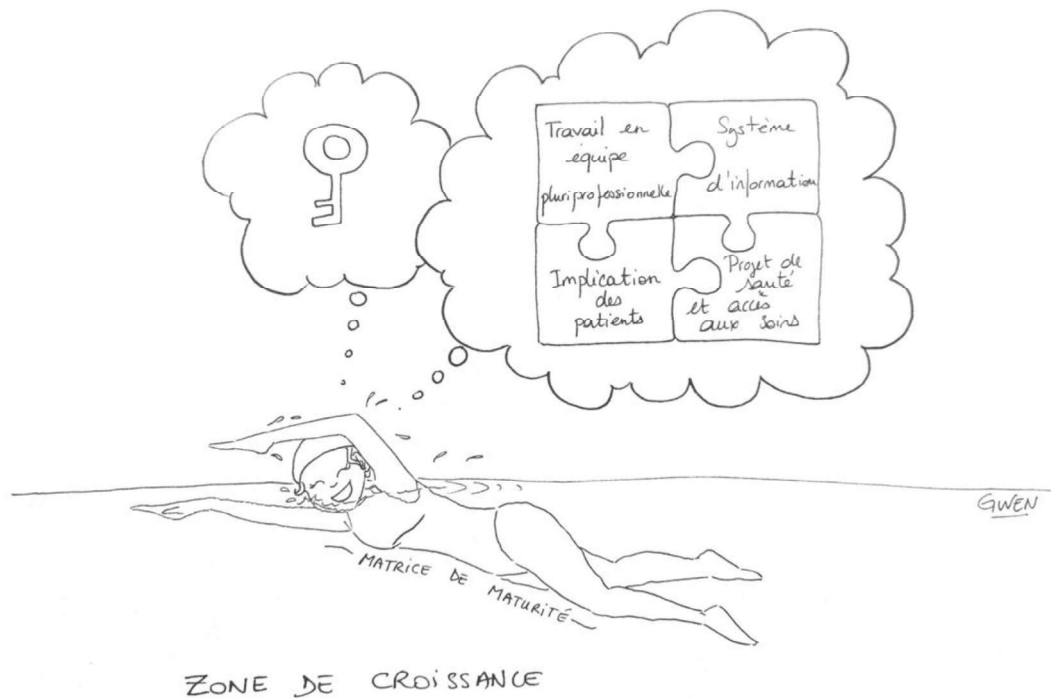 Travail en
équipe
pluriprofessionnelle
Système
d'information
Implication
des
patients
Projet de
santé
et accès
aux soins
GWEN
MATRICE DE MATURITÉ
ZONE DE CROISSANCE